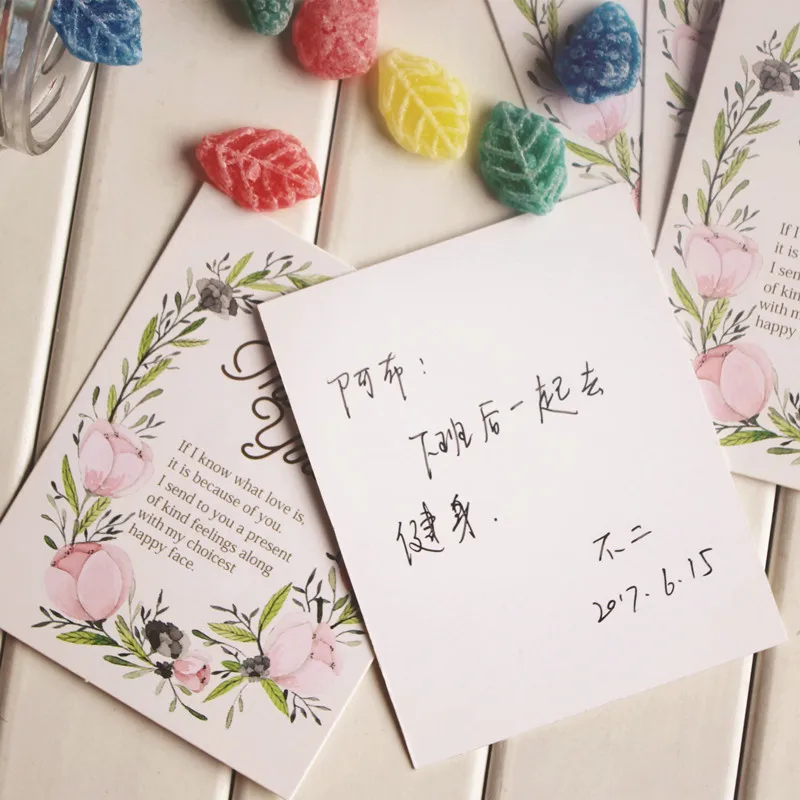 阿布:
下班后一起去
健身.
不二
2017.6.15
If I know what love is,
it is because of you.
I send to you a present
of kind feelings along
with my choicest
happy face.
If I
it is
I sen
of kin
with m
happy